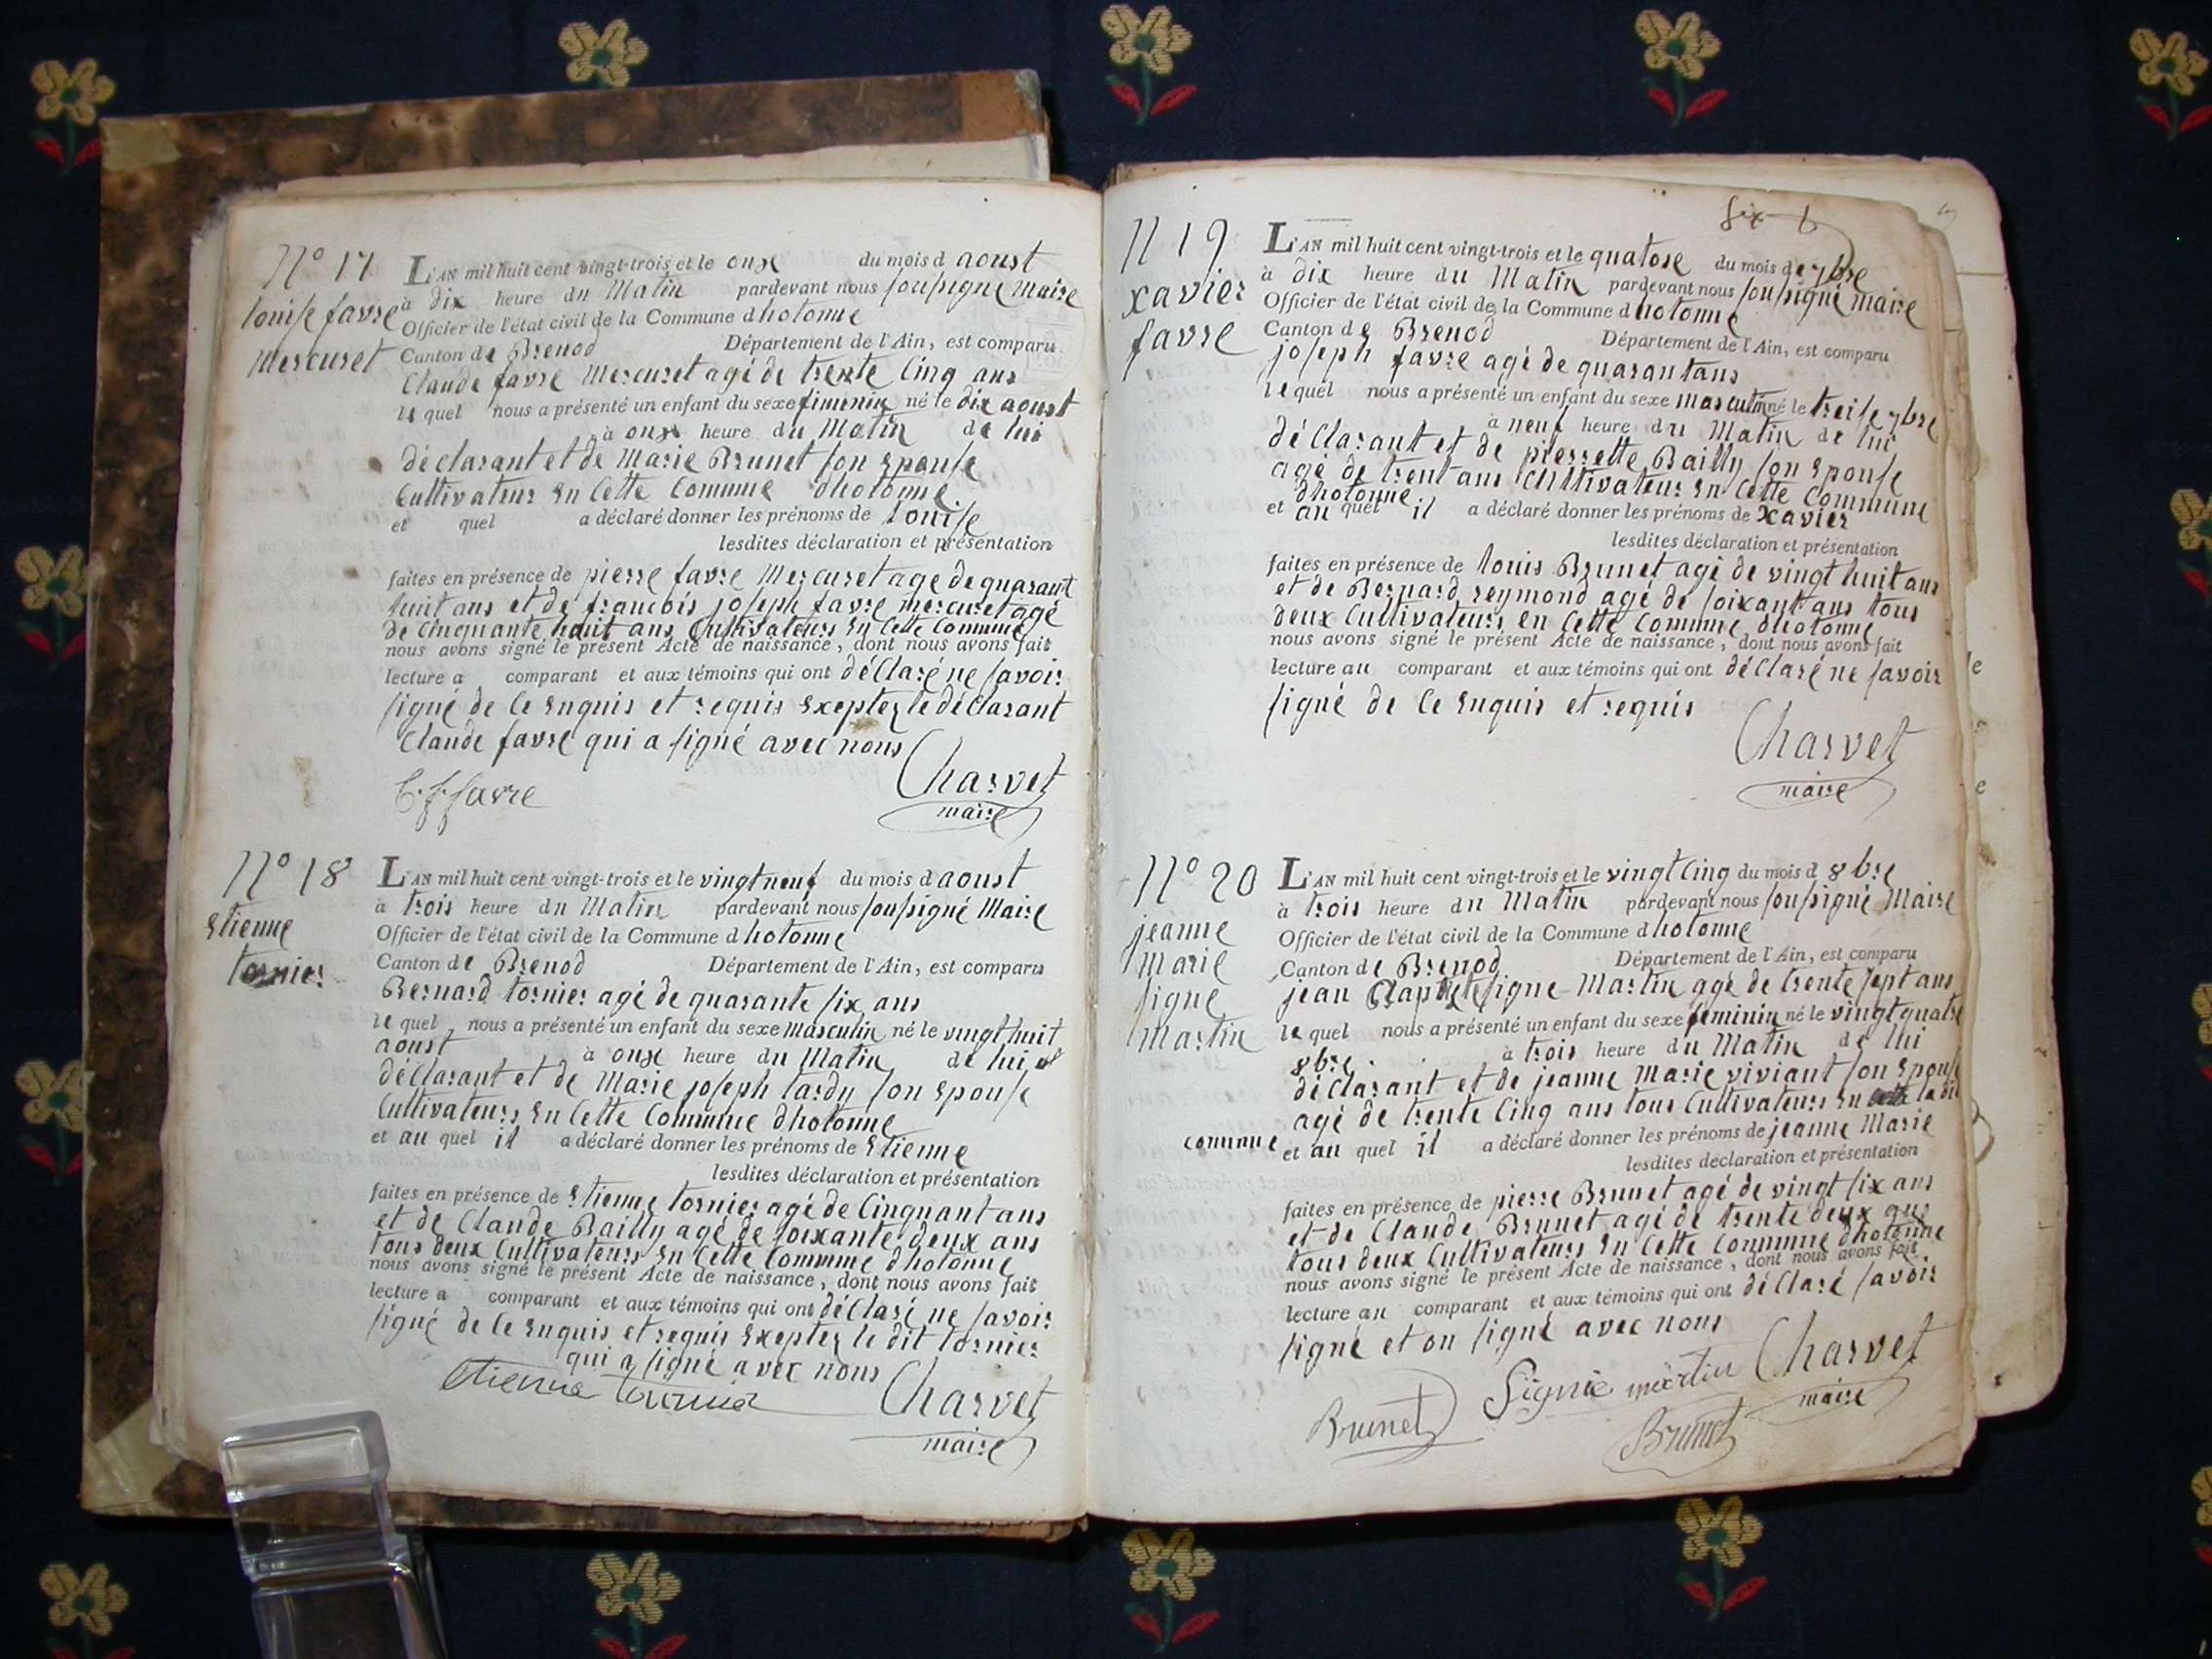 N° 17
Louise favre
Mercuret
L'AN mil huit cent vingt-trois et le onze du mois d aoust
à dix heure du Matin pardevant nous soussigné Maire
Officier de l'état civil de la Commune d hotonne
Canton de Brenod Département de l'Ain, est comparu
Claude favre Mercuret agé de trente Cinq ans
le quel nous a présenté un enfant du sexe fiminin né le dix aoust
à onze heure du Matin de lui
déclarant et de Marie Brunet son Epouse
Cultivateur En Cette Comune dhotonne
et quel a déclaré donner les prénoms de Louise
lesdites déclaration et présentation
faites en présence de pierre favre Mercuret age de quarant
huit ans et de francois joseph favre mercuret agé
de Cinquante huit ans Cultivateurs En Cette Commune
nous avons signé le présent Acte de naissance, dont nous avons fait
lecture a comparant et aux témoins qui ont déClaré ne savoir
signé de Ce Enquis et requis Exeptez le déClarant
Claude favre qui a signé avec nous
Charvet
maire
C. f. favre
N° 18
Etienne
tornier
L'AN mil huit cent vingt-trois et le vingt neuf du mois d aoust
à trois heure du Matin pardevant nous soussigné Maire
Officier de l'état civil de la Commune d hotonne
Canton de Brenod Département de l'Ain, est comparu
Bernard tornier agé de quarante six ans
le quel nous a présenté un enfant du sexe masculin né le vingt huit
aoust à onze heure du Matin de lui
déClarant et de Marie joseph tardy son Epouse
Cultivateurs En Cette Commune dhotonne
et au quel il a déclaré donner les prénoms de Etienne
lesdites déclaration et présentation
faites en présence de Etienne tornier agé de Cinquant ans
et de Claude Bailly agé de soixante deux ans
tous deux Cultivateurs En Cette Commune dhotonne
nous avons signé le présent Acte de naissance, dont nous avons fait
lecture a comparant et aux témoins qui ont déClaré ne savoir
signé de Ce Enquis et requis Exeptez le dit tornier
qui a signé avec nous
etienne tornier
Charvet
maire
six 6
N 19
xavier
favre
L'AN mil huit cent vingt-trois et le quatose du mois de 7bre
à dix heure du Matin pardevant nous soussigné maire
Officier de l'état civil de la Commune d hotonne
Canton de Brenod Département de l'Ain, est comparu
joseph favre agé de quarantans
le quel nous a présenté un enfant du sexe masculin né le treise 7bre
à neuf heure du Matin de lui
déClarant et de pierrette Bailly son Epouse
agé de trent ans Cultivateur En Cette Commune
dhotonne
et au quel il a déclaré donner les prénoms de xavier
lesdites déclaration et présentation
faites en présence de louis Brunet agé de vingt huit ans
et de Bernard reymond agé de soixant ans tous
deux Cultivateurs en Cette Comune dhotonne
nous avons signé le présent Acte de naissance, dont nous avons fait
lecture au comparant et aux témoins qui ont déClaré ne savoir
signé de Ce Enquis et requis
Charvet
maire
N° 20
jeanne
Marie
signe
Martin
L'AN mil huit cent vingt-trois et le vingt Cinq du mois d 8bre
à trois heure du Matin pardevant nous soussigné Maire
Officier de l'état civil de la Commune d hotonne
Canton de Brenod Département de l'Ain, est comparu
jean Baptiste signe Martin agé de trente sept ans
le quel nous a présenté un enfant du sexe féminin né le vingt quatre
8bre à trois heure du Matin de lui
déClarant et de jeanne Marie viviant son Epouse
agé de trente Cinq ans tous Cultivateurs En la dit
comune
et au quel il a déclaré donner les prénoms de jeanne Marie
lesdites declaration et présentation
faites en présence de pierre Brunet agé de vingt six ans
et de Claude Brunet agé de trente deux ans
tous deux Cultivateurs En Cette Commune dhotonne
nous avons signé le présent Acte de naissance, dont nous avons fait
lecture au comparant et aux témoins qui ont déClaré savoir
signé et on signé avec nous
Signie martin
Charvet
maire
Brunet
Brunet